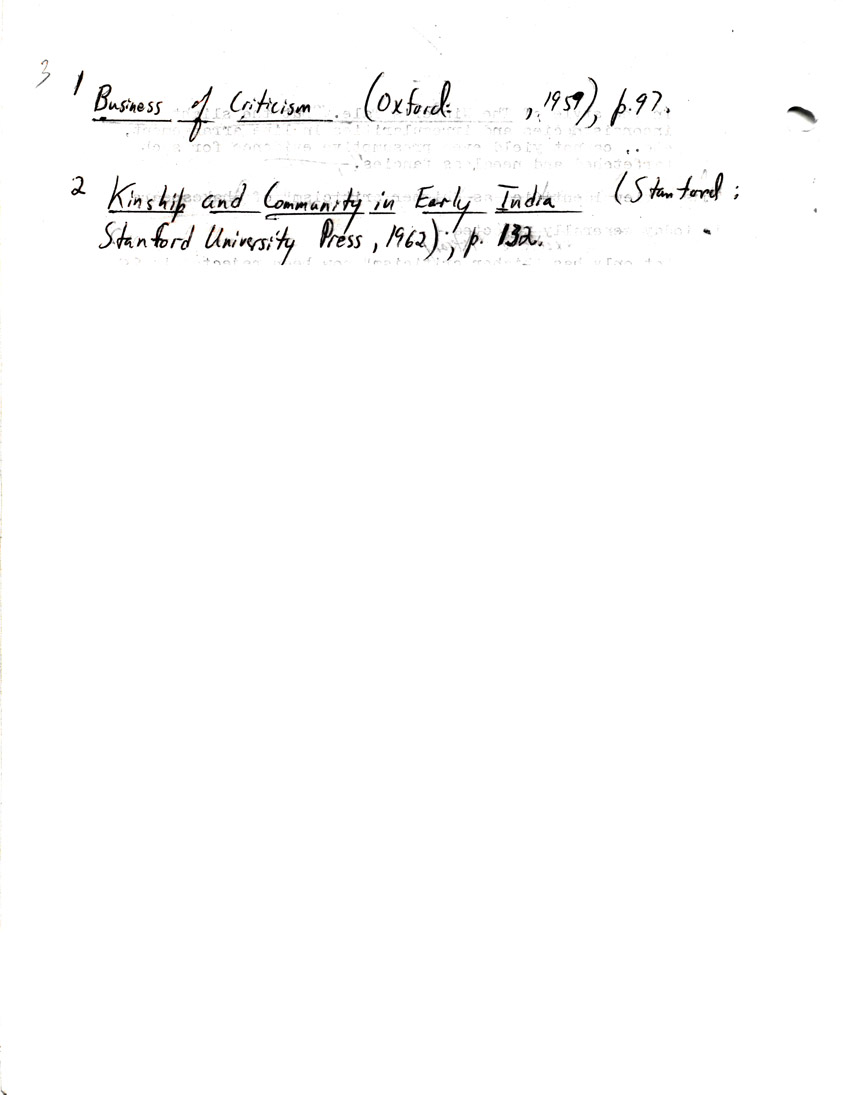 3
1 Business of Criticism (Oxford: , 1959), p.97.
2 Kinship and Community in Early India (Stanford:
Stanford University Press, 1962), p. 132.